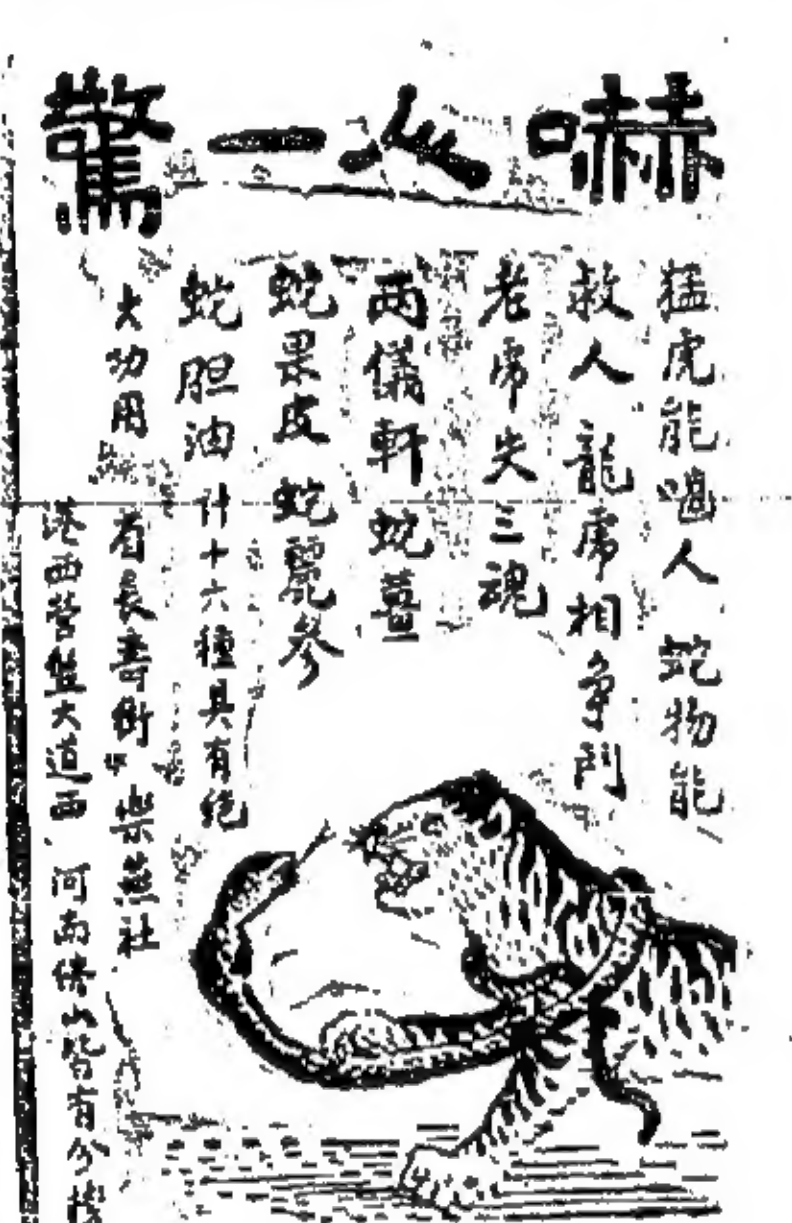 嚇心一驚
猛虎能噬人 蛇物能
救人 龍虎相爭鬥
老虎失三魂
兩儀軒 蛇薑
蛇果皮 蛇麗參
蛇胆油 什十六種具有絕
大功用 省長壽街 樂澄社
港西營盤大道西 河南佛山皆有分機